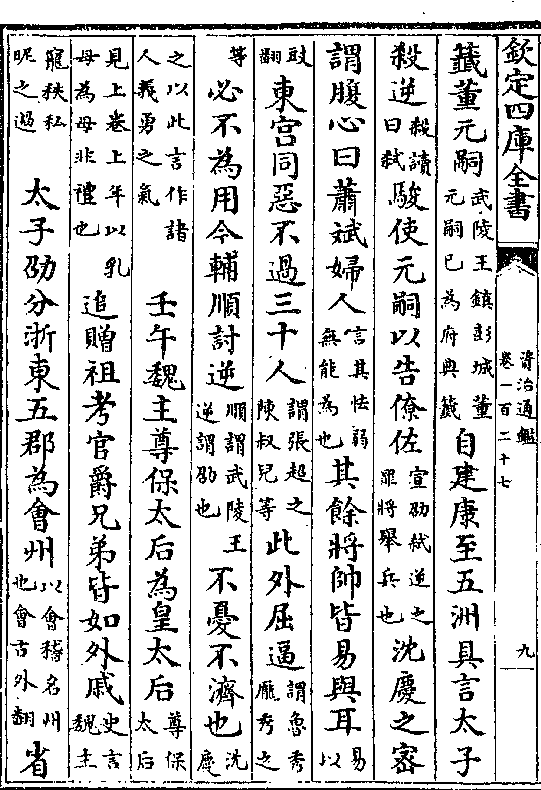 欽定四庫全書
資治通鑑
卷一百二十七
九
籤董元嗣武陵王鎮彭城董元嗣已為府典籤自建康至五洲具言太子
殺逆殺讀曰弑駿使元嗣以告僚佐宣劭弑逆之罪將舉兵也沈慶之宻
謂腹心曰蕭斌婦人言其怯弱無能為也其餘將帥皆易與耳易以
豉翻東宫同惡不過三十人謂張超之陳叔兒等此外屈逼謂魯秀龎秀之
等必不為用今輔順討逆順謂武陵王逆謂劭也不憂不濟也沈慶
之以此言作諸人義勇之氣壬午魏主尊保太后為皇太后尊保太后
見上卷上年以乳母為母非禮也追贈祖考官爵兄弟皆如外戚史言魏主
寵秩私昵之過太子劭分浙東五郡為會州以會稽名州也會古外翻省